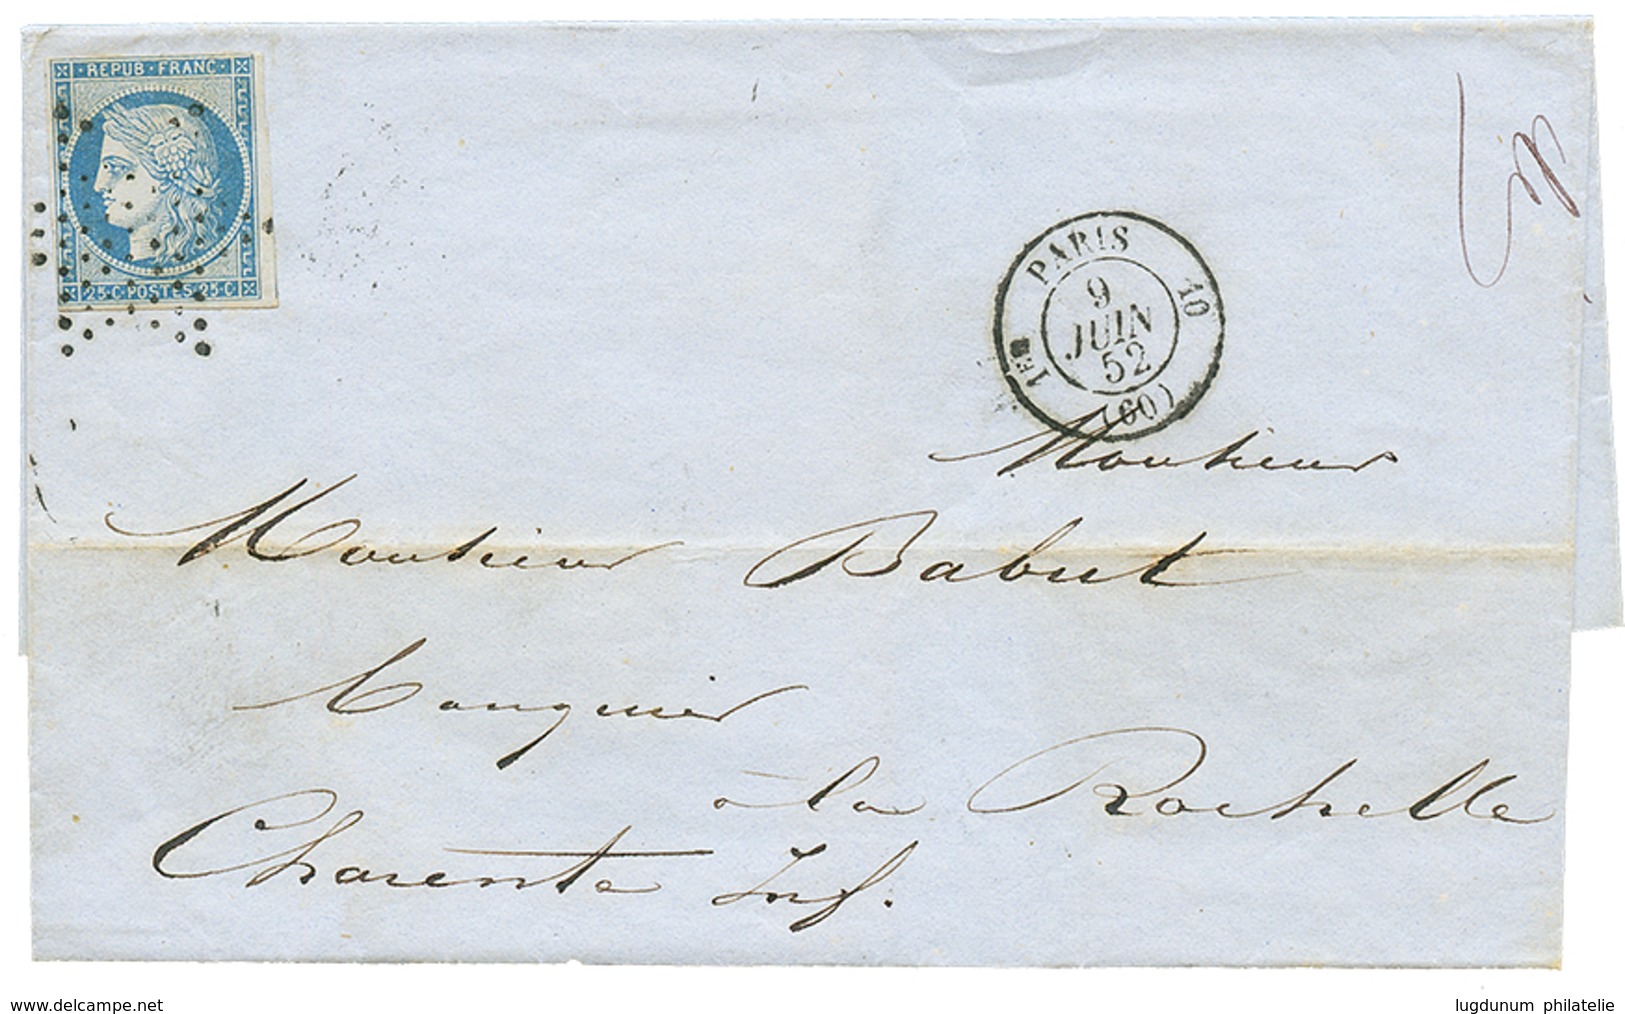 REPUB·FRANC·
25·C·POSTES·25·C
PARIS
10
1ER
9
JUIN
52
(60)
Monsieur
Monsieur Babut
banquier
à la Rochelle
Charente Inf.
www.delcampe.net
lugdunum philatelie